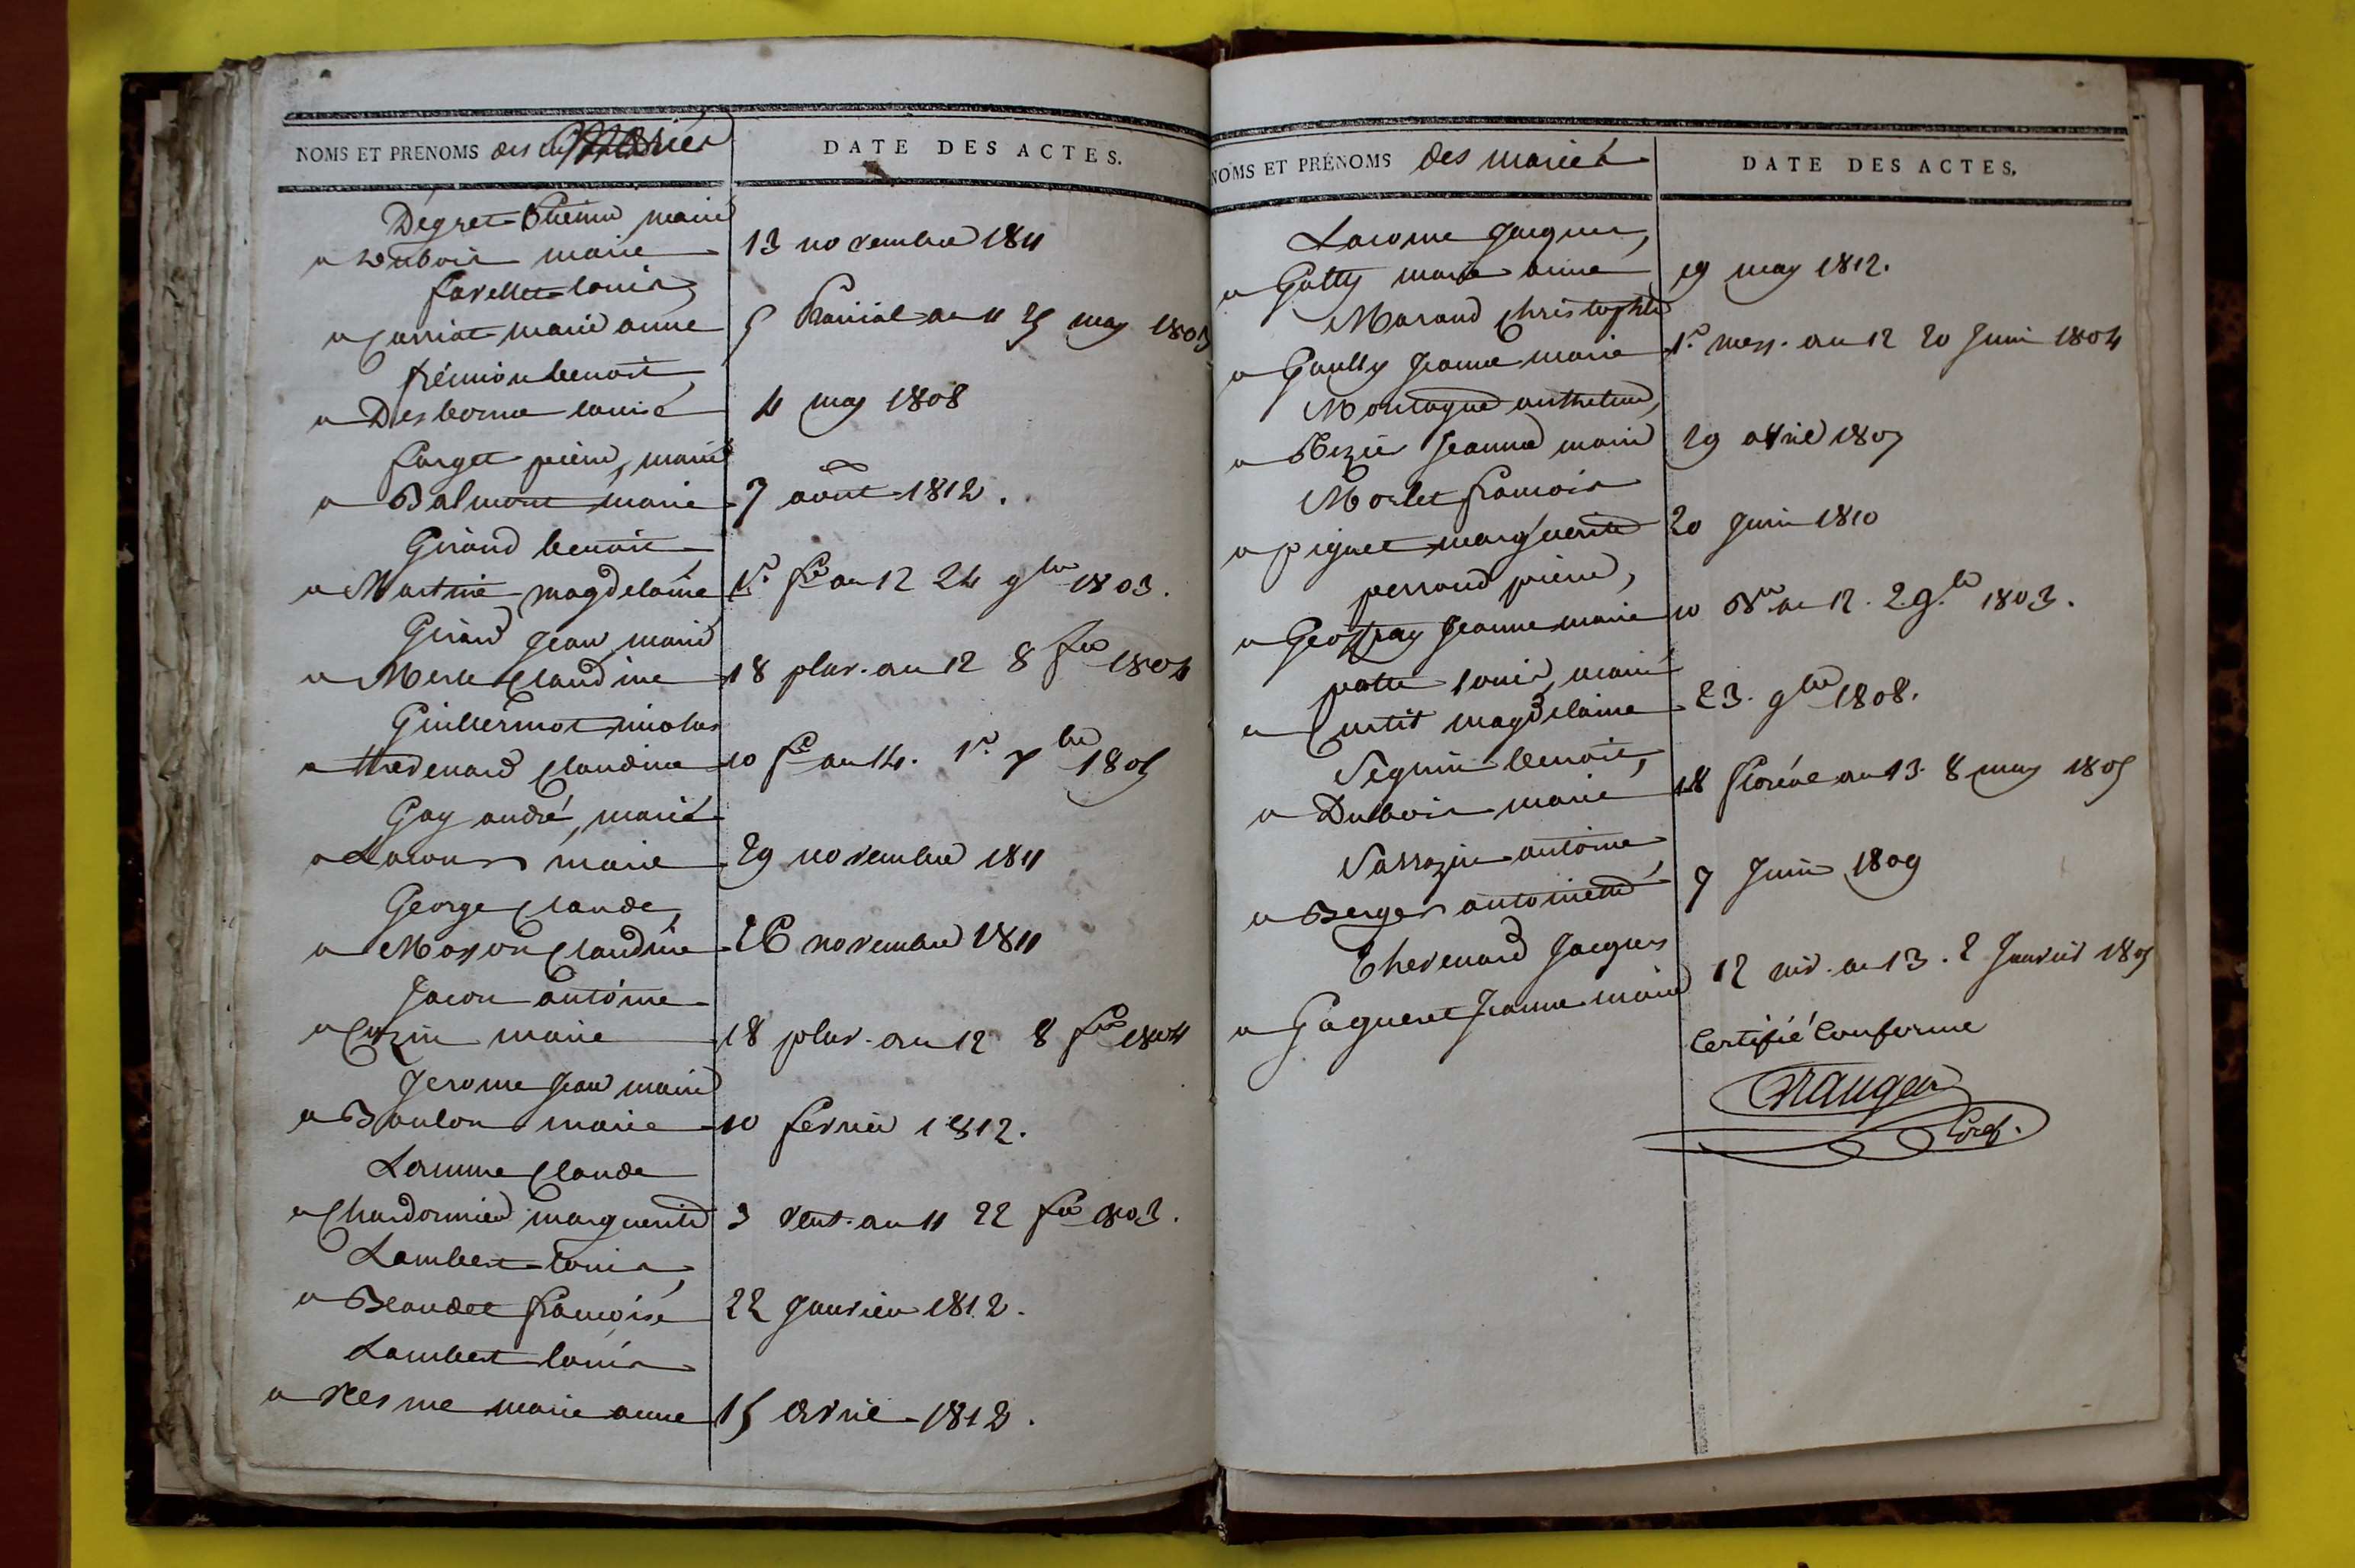 NOMS ET PRENOMS des Mariés
DATE DES ACTES.
Dégret Etienne, marié
a Dubois marie 13 novembre 1811
favellet louis,
a Curriat marie anne 5 Prairial an 11 25 may 1803
frémion benoit,
a Desborne louise 4 may 1808
farget pierre, marié
a Balmont marie 7 août 1812.
Girand benoit
a Martine magdelaine 1er fre an 12 24 9bre 1803.
Girard Jean, marié
a Merle Claudine 18 pluv. an 12 8 fer 1804
Guillermot nicolas
a thevenard Claudine 10 fr an 14. 1er xbre 1805
Gay andré, marié
a Lacour marie 29 novembre 1811
George Claude,
a Mason Claudine 26 novembre 1811
Jacon antoine
a Cozin marie 18 pluv. an 12 8 fer 1804
Jerome Jean marié
a Boulon marie 10 fevrier 1812.
Lamure Claude
a Chardonnier marguerite 3 vent. an 11 22 fer 1803.
Lambert louis,
a Beaudet françoise 22 Janvier 1812.
Lambert louis
a Mesme marie anne 15 avril 1812.
NOMS ET PRÉNOMS des mariés
DATE DES ACTES.
Lacome Jacques,
a Gutty marie anne 19 may 1812.
Marand Christophle
a Gaully Jeanne marie 1er mess. an 12 20 Juin 1804
Montagne anthelme,
a Bezier Jeanne marie 29 avril 1807
Morlet françois
a piguet marguerite 20 Juin 1810
perraud pierre,
a Geoffray Jeanne marie 10 Bre an 12. 2 9bre 1803.
patté louis, marié
a Curtit magdelaine 23. 9bre 1808.
Seguin benoit,
a Dubois marie 18 floréal an 13. 8 may 1805
Sarrazin antoine,
a Berger antoinette 7 Juin 1809
Thevenard Jacques
a Gagneret Jeanne marie 12 niv. an 13. 2 Janvier 1805
Certifié Conforme